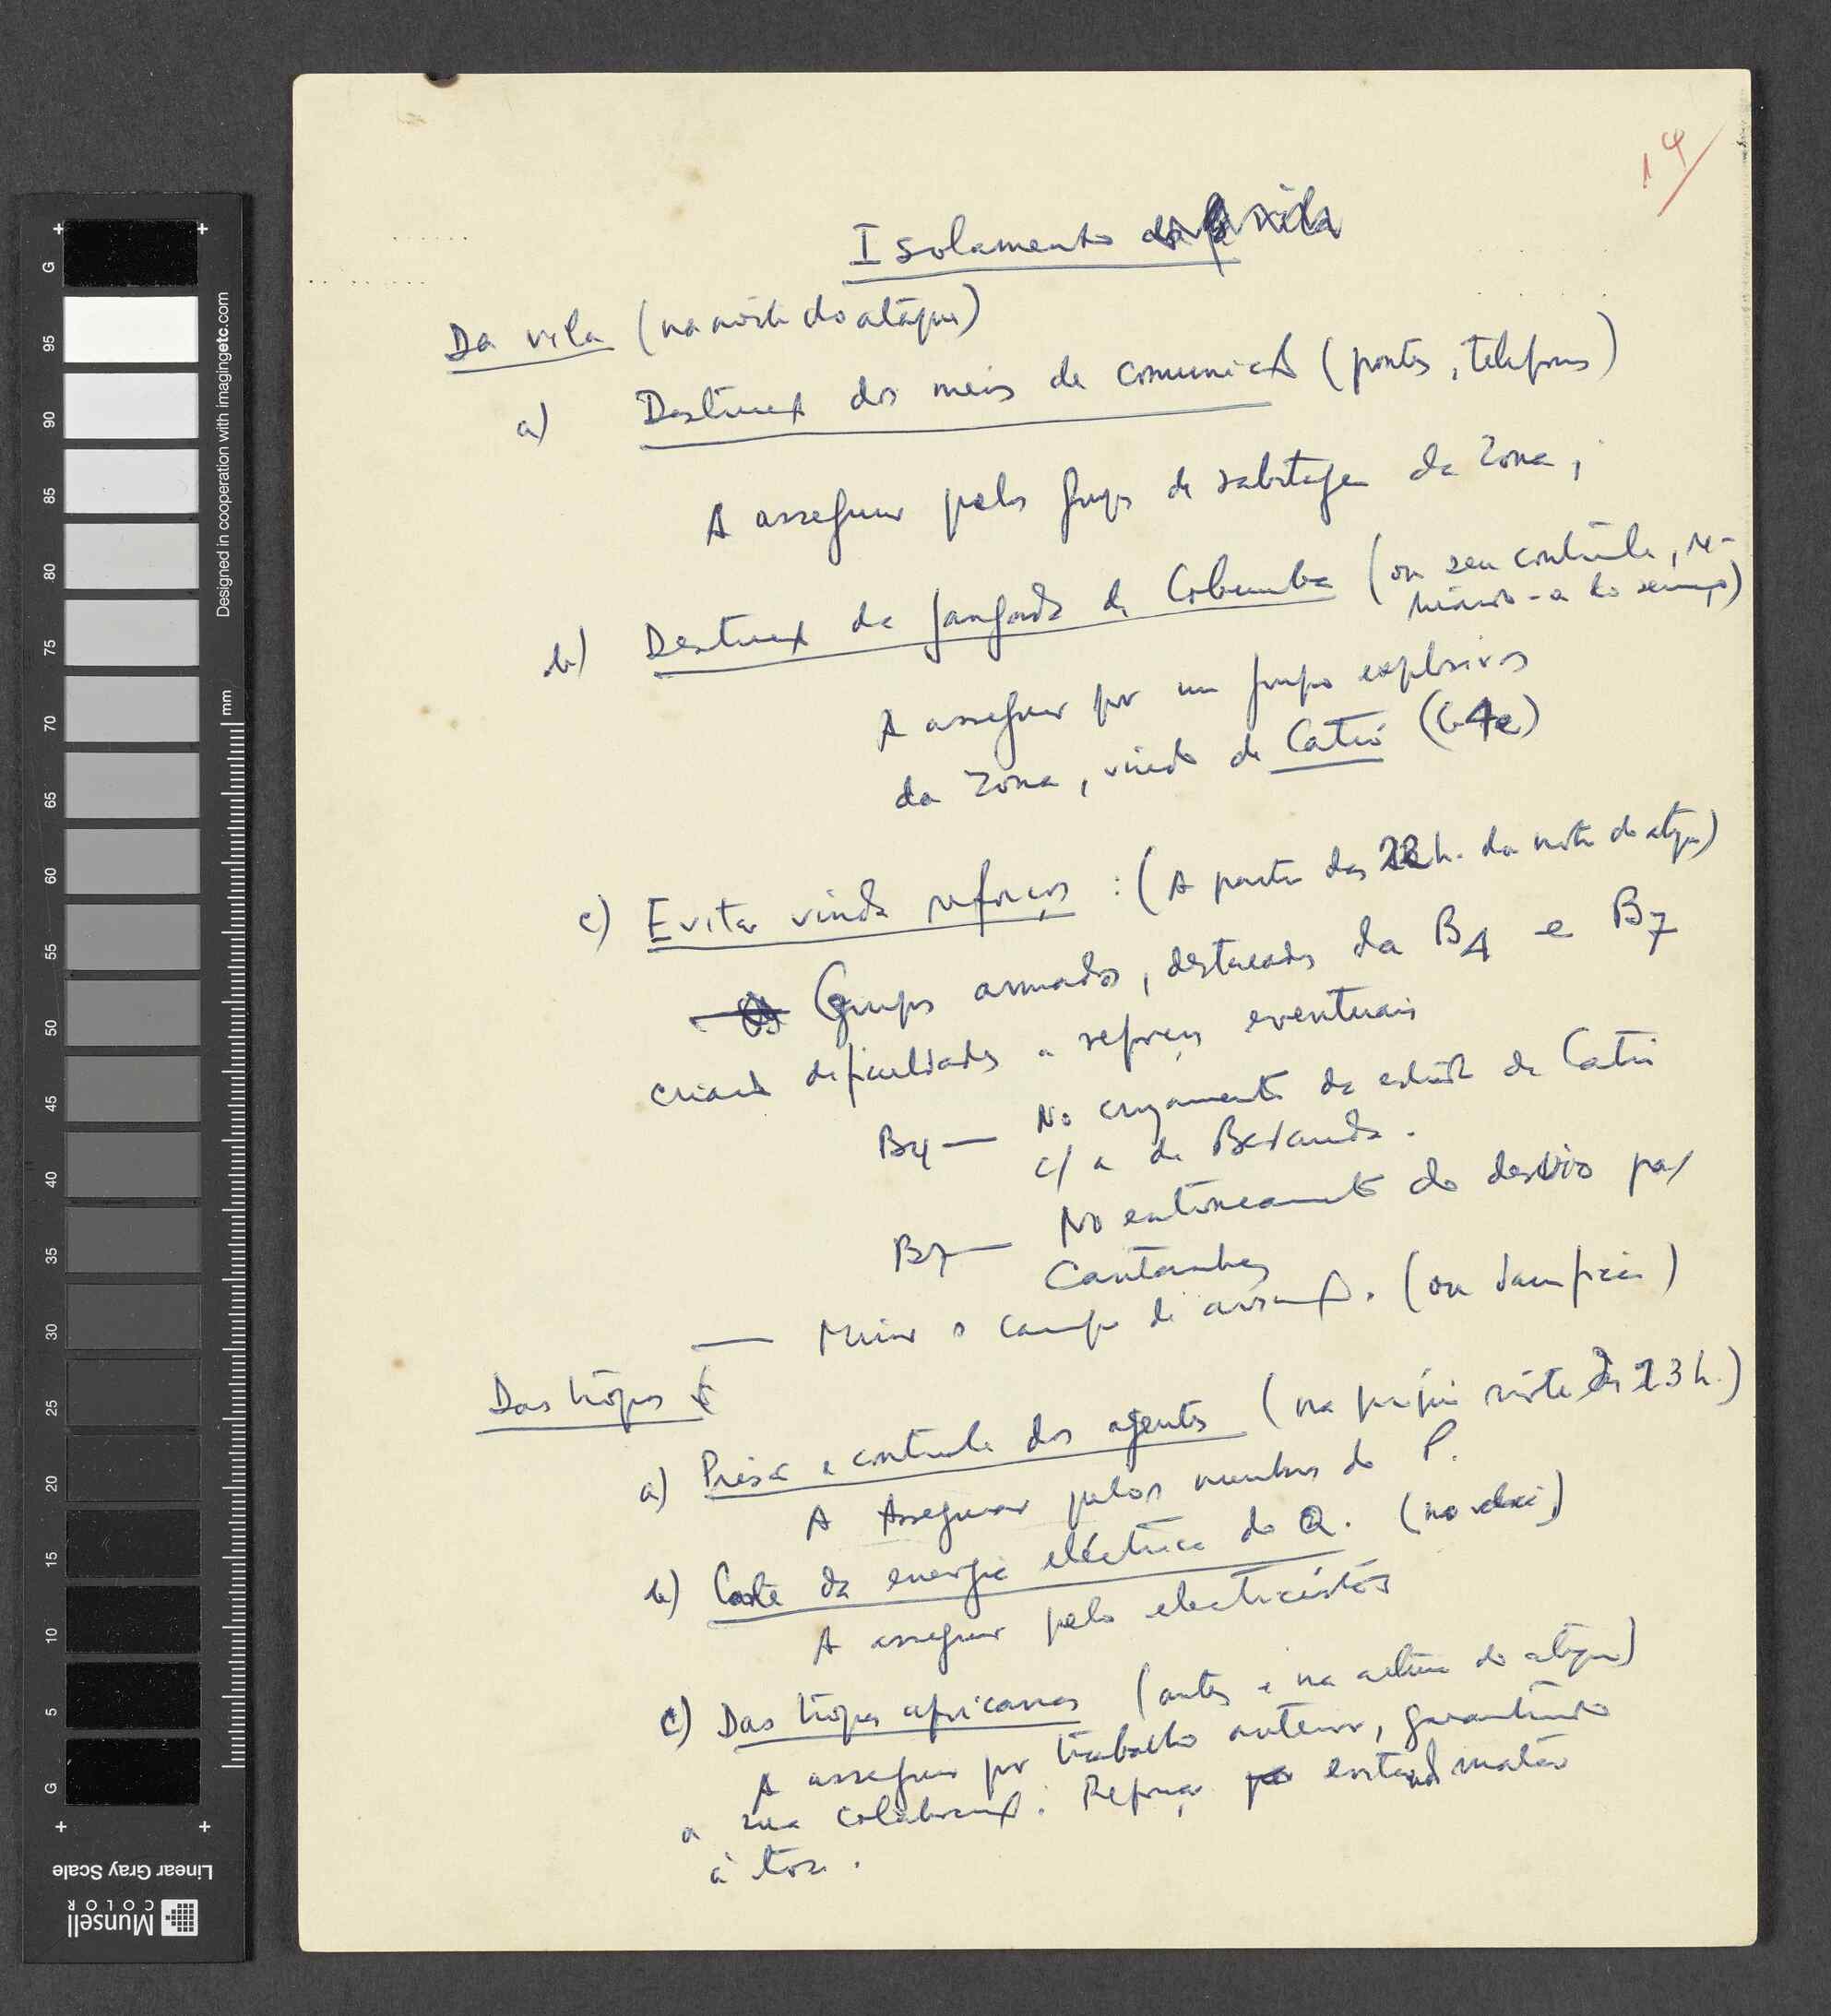 14
Isolamento da vila
Da vila (na noite do ataque)
a) Destruição dos meios de comunicação (pontes, telefones)
A assegurar pelos grupos de sabotagem da Zona,
b) Destruição da jangada de Cobumba (ou seu contrôle, re-
tirando-a do serviço)
A assegurar por um grupo explosivos
da Zona, vindo de Catió
c) Evitar vinda reforços : (A partir das 22 h. da noite do ataque)
Grupos armados, destacados da B4 e B7
criando dificuldades a reforços eventuais
B4 — No cruzamento da estrada de Catió
c/ a de Bedanda.
B7 — No entroncamento do desvio par/
Cantanhez
— Minar o campo de aviação. (ou danificar)
Das tropas
a) Prisão e contrôle dos agentes (na própria noite às 23 h.)
A Assegurar pelos membros do P.
b) Corte da energia eléctrica do Q.
A assegurar pelo electricista
c) Das tropas africanas (antes e na altura do ataque)
A assegurar por trabalho anterior, garantindo
a sua colaboração. Reforçar evitando matar
à toa.